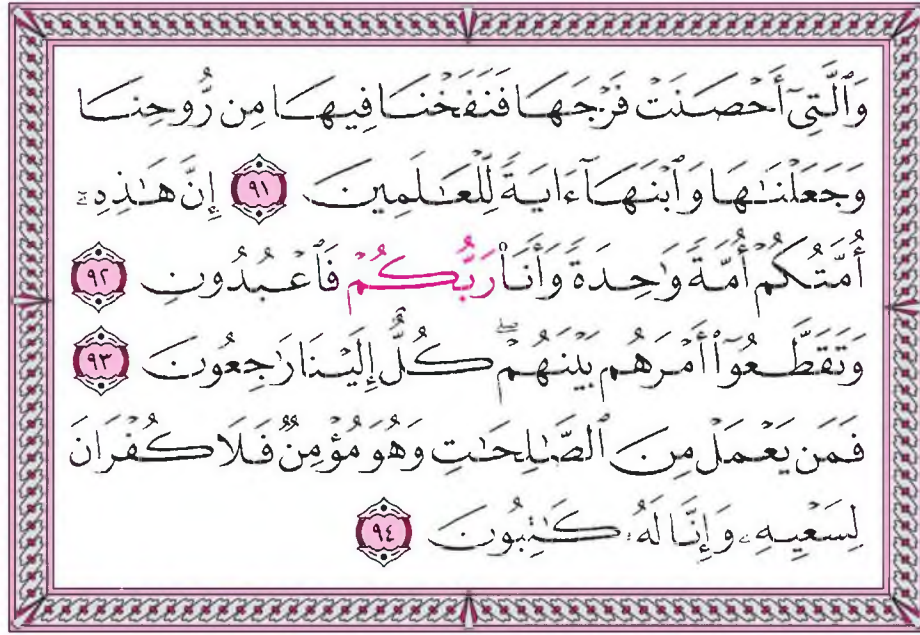 وَٱلَّتِىٓ أَحْصَنَتْ فَرْجَهَا فَنَفَخْنَا فِيهَا مِن رُّوحِنَا
وَجَعَلْنَٰهَا وَٱبْنَهَآ ءَايَةً لِّلْعَٰلَمِينَ ٩١ إِنَّ هَٰذِهِۦٓ
أُمَّتُكُمْ أُمَّةً وَٰحِدَةً وَأَنَا۠ رَبُّكُمْ فَٱعْبُدُونِ ٩٢
وَتَقَطَّعُوٓا۟ أَمْرَهُم بَيْنَهُمْ ۖ كُلٌّ إِلَيْنَا رَٰجِعُونَ ٩٣
فَمَن يَعْمَلْ مِنَ ٱلصَّٰلِحَٰتِ وَهُوَ مُؤْمِنٌ فَلَا كُفْرَانَ
لِسَعْيِهِۦ وَإِنَّا لَهُۥ كَٰتِبُونَ ٩٤